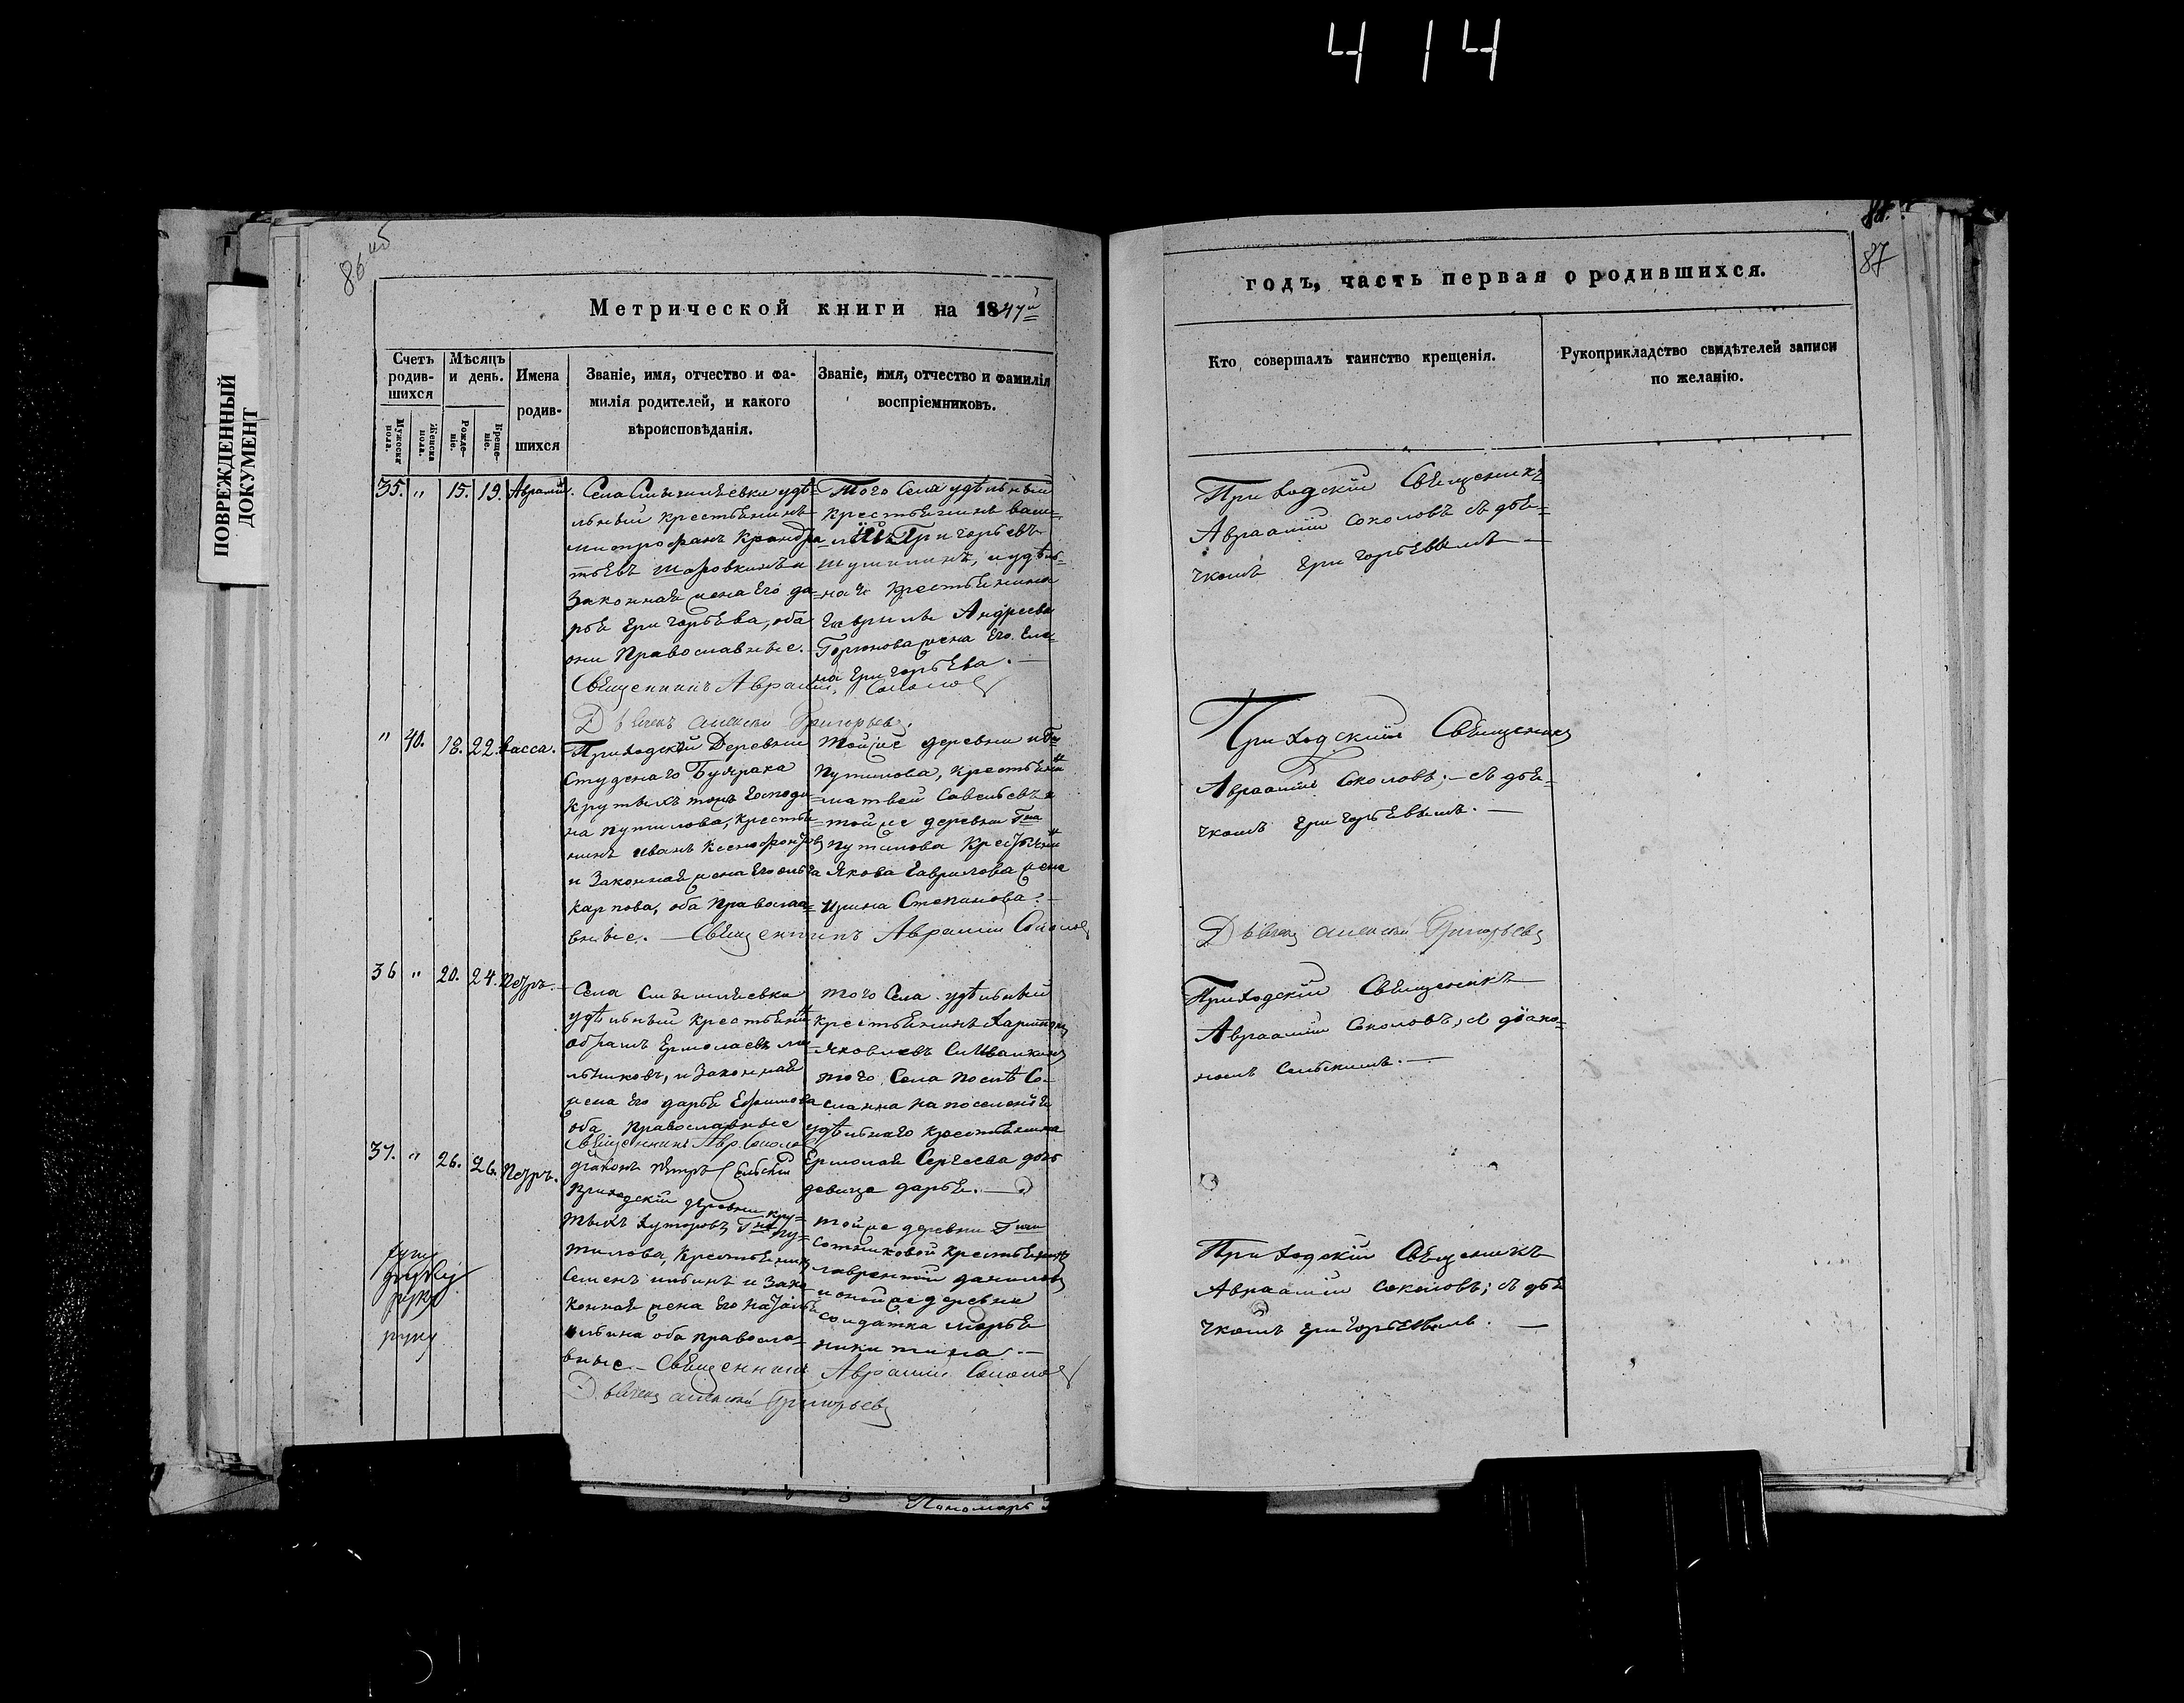 4 14
ПОВРЕЖДЕННЫЙ
ДОКУМЕНТ
86 об
Метрической книги на 1847й
Счетъ родив-шихся
Мѣсяцъ и день.
Имена родив-шихся
Званіе, имя, отчество и фа-
милія родителей, и какого
вѣроисповѣданія.
Званіе, имя, отчество и фамилія
воспріемниковъ.
Мужеска пола.
Женска пола.
Рожде-ніе.
Креще-ніе.
35. " 15. 19. Аврамій.
Села удѣ-
льный крестьянинъ
митрофанъ Кандра
тьевъ и
Законная жена Его да
рья григорьева, оба
они Православные.
Священникъ Аврамій Соколов
Дьячекъ алексѣй Григорьевъ.
Того Села удѣльный
крестьянинъ васи-
лій Григорьевъ
и удѣль-
наго крестьянина
гаврилы Андреева
Горюнова жена Его Еле-
на григорьева. —
" 40. 18. 22. васса.
Приходской Деревни
Студенаго Буярака
Крутыхъ тожъ господи
на путилова, крестья
нинъ иванъ Ксенофонтов
и Законная жена Его
Карпова, оба Правосла-
вные. — Священникъ Аврамій Соколов
той же деревни
Путилова, крестьянинъ
матвей Савельевъ и
той же деревни Гна
путилова Крестьянина
Якова гаврилова жена
Ирина Степанова. —
36 " 20. 24. Петръ.
Села
удѣльный крестьянинъ
абрамъ Ермолаевъ ме
льниковъ, и Законная
жена Его дарья Ефимова
оба Православные
Священникъ Авр. Соколов
діаконъ петръ Сельскій
того Села удѣльный
крестьянинъ Харитонъ
Яковлевъ
того Села послѣ Со-
сланна на поселеніе
удѣльнаго крестьянина
Ермолая Сергеева дочь
девица дарья. —
37. " 26. 26. Петръ.
приходской деревни кру-
тыхъ хуторовъ Гна пу-
тилова, крестьянинъ
Семенъ и Зако
нная жена Его наталья
оба правосла-
вные. — Священникъ Аврамій Соколов
Дьячекъ алексѣй Григорьевъ
той же деревни Гжи
сотниковой крестьянинъ
лаврентій данилов
и оной же деревни
Солдатка марья
никитина. —
руку
Пономарь
годъ, часть первая о родившихся.
87
Кто совершалъ таинство крещенія.
Рукоприкладство свидѣтелей записи
по желанію.
Приходскій Священикъ
Авраамій Соколовъ съ дья-
чкомъ григорьевымъ —
Приходскій Священикъ
Авраамій Соколовъ; — съ дья-
чкомъ григорьевымъ. —
Дьячекъ алексѣй Григорьевъ
Приходскій Священикъ
Авраамій Соколовъ, съ діако-
номъ Сельскимъ. —
Приходскій Священикъ
Авраамій Соколовъ; съ дья
чкомъ григорьевымъ. —